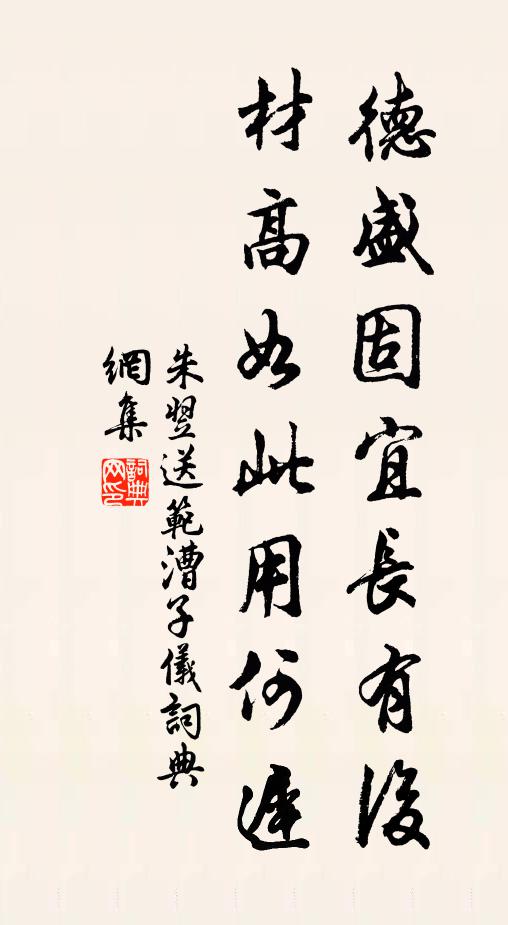 德盛固宜長有後
材高如此用何遲
朱翌送範漕子儀詞典
網集
詞典網印